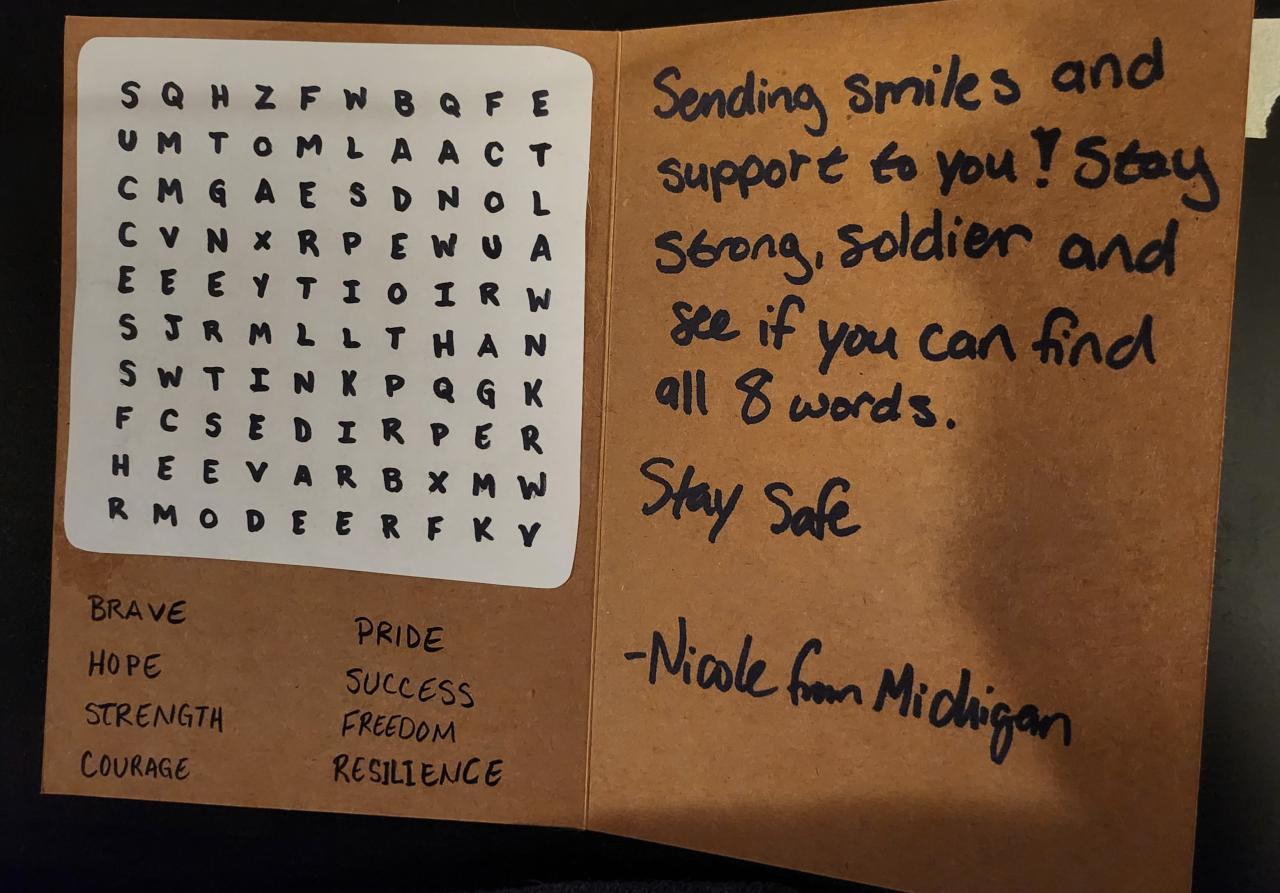 S Q H Z F W B Q F E
U M T O M L A A C T
C M G A E S D N O L
C V N X R P E W U A
E E E Y T I O I R W
S J R M L L T H A N
S W T I N K P Q G K
F C S E D I R P E R
H E E V A R B X M W
R M O D E E R F K V
BRAVE
HOPE
STRENGTH
COURAGE
PRIDE
SUCCESS
FREEDOM
RESILIENCE
Sending smiles and
support to you! Stay
strong, soldier and
see if you can find
all 8 words.
Stay Safe
-Nicole from Michigan